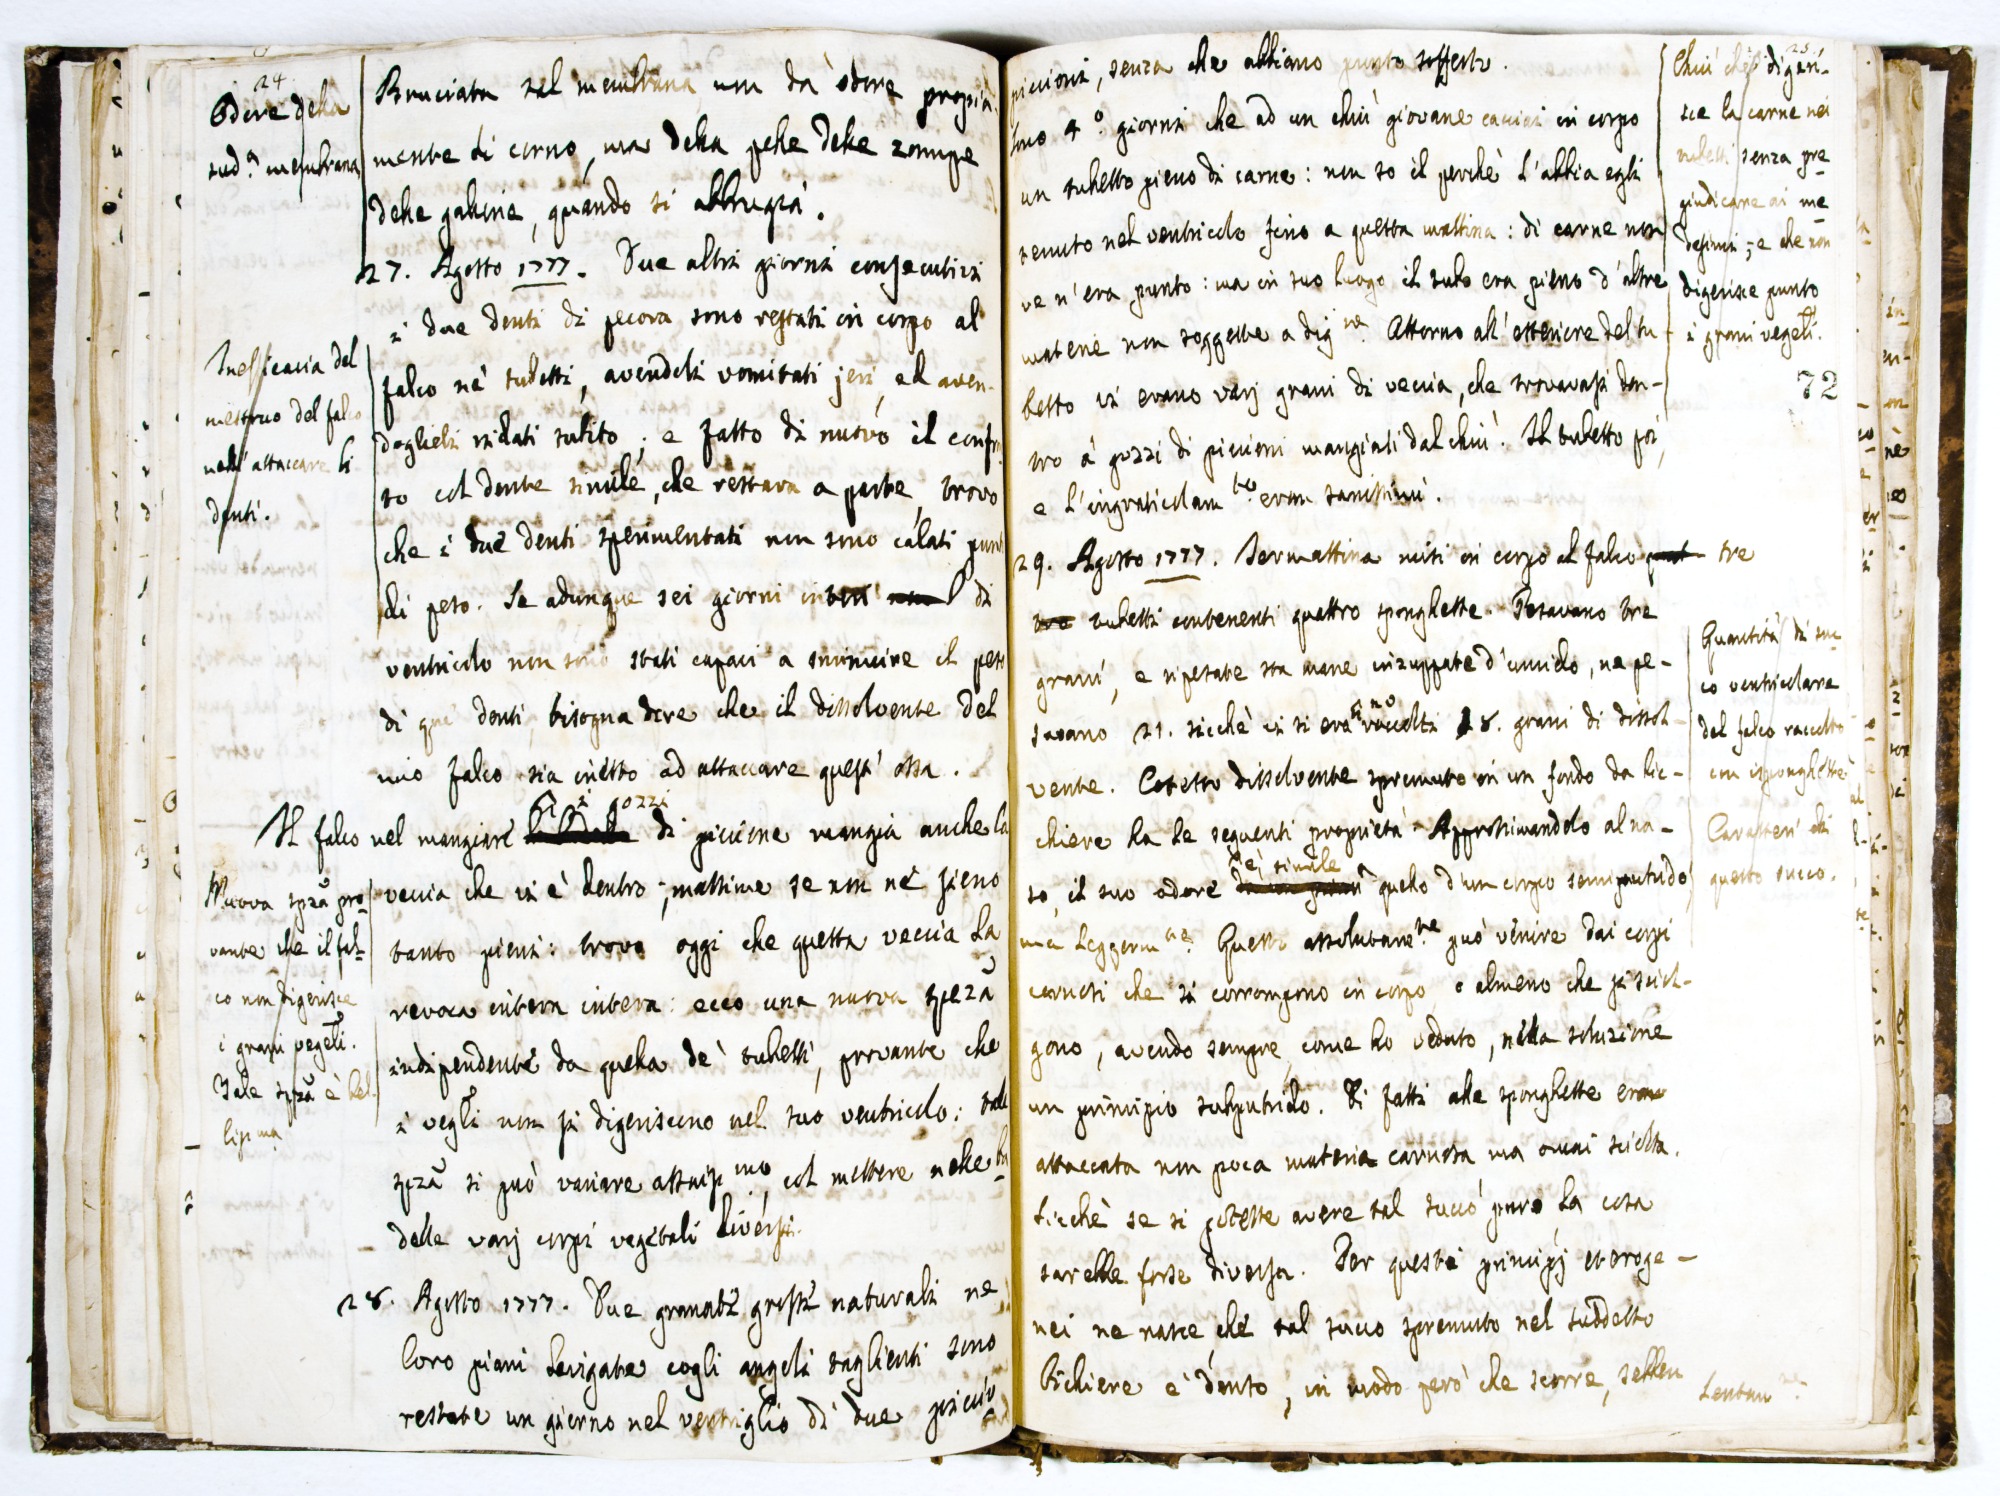 24
Odore della
sud.a membrana
Bruciata tal membrana non dà odore propia-
mente di corno, ma della pelle delle zampe
delle galline, quando si abbrugia.
27. Agosto 1777. Due altri giorni consecutivi
i due denti di pecora sono restati in corpo al
Inefficacia del
mestruo del falco
nell'attaccare li
denti.
falco ne' tubetti, avendoli vomitati jeri, ed aven-
doglieli ridati subito; e fatto di nuovo il confron
to col dente simile, che restava a parte, trovo
che i due denti sperimentati non sono calati punto
di peso. Se adunque sei giorni interi di
ventricolo non sono stati capaci a sminuire il peso
di que' denti, bisogna dire che il dissolvente del
mio falco sia inetto ad attaccare quest' ossa.
Il falco nel mangiare i gozzi di piccione mangia anche la
Nuova spza pro-
vante che il fal-
co non digerisce
i grani vegeli.
Tale spza è bel-
lissima
veccia che vi è dentro; massime se non ne' sieno
tanto pieni: trovo oggi che questa veccia la
revoca intera intera: ecco una nuova speza
indipendente da quella de' tubetti, provante che
i vegli non si digeriscono nel suo ventricolo: tale
spza si può variare assaissimo, col mettere nelle bu
delle varj corpi vegetali diversi.
28. Agosto 1777. Due granate grosse naturali ne
loro piani levigate cogli angoli taglienti sono
restate un giorno nel ventriglio di due piccio
25
piccioni, senza che abbiano punto sofferto.
Sono 4.o giorni che ad un chiù giovane cacciai in corpo
un tubetto pieno di carne: non so il perchè l'abbia egli
tenuto nel ventricolo fino a questa mattina: di carne non
ve n'era punto: ma in suo luogo il tubo era pieno d'altre
materie non soggette a dig.ne. Attorno all'esteriore del tu-
betto vi erano varj grani di veccia, che trovavasi den-
tro a' gozzi di piccioni mangiati dal chiù. Il tubetto poi,
e l'ingraticolam.to eran sanissimi.
Chiù che digeri-
sce la carne nei
tubetti senza pre
giudicare ai me
desimi; e che non
digerisce punto
i grani vegeli.
72
29. Agosto 1777. Jermattina misi in corpo al falco tre
tubetti contenenti quattro sponghette. Pesavano tre
grani, e ripesate sta mane inzuppate d'umido, ne pe-
savano 21. sicchè vi si erano raccolti 18. grani di dissol-
vente. Cotesto dissolvente spremuto in un fondo da bic-
chiere ha le seguenti proprietà. Approssimandolo al na-
so, il suo odore è simile quello d'un corpo semiputrido,
ma leggerm.ne. Questo assolutam.ne può venire dai corpi
carnosi che si corrompono in corpo o almeno che si sciol-
gono, avendo sempre, come ho veduto, nella soluzione
un principio subputrido. Di fatti alle sponghette erano
attaccata non poca materia carnosa ma omai sciolta.
Sicchè se si potesse avere tal succo puro la cosa
sarebbe forse diversa. Per questi principj eteroge-
nei ne nasce, che tal succo spremuto nel suddetto
bichiere e' denso, in modo però che scorre, sebben
lentam.ne.
Quantità di suc
co ventricolare
del falco raccolto
con isponghette
Caratteri di
questo succo.